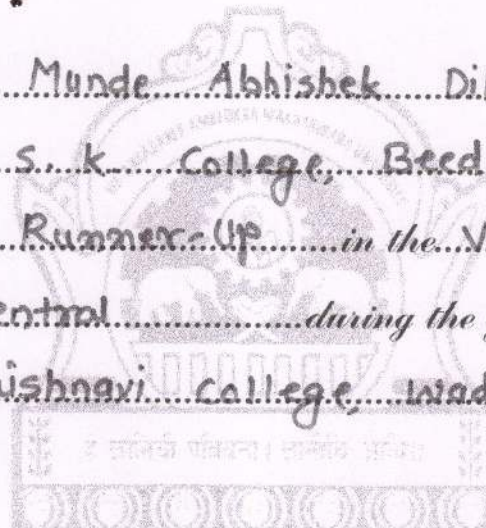 Munde Abhishek Di
S. K. College, Beed
Runner-Up in the V
entral during the
ishnavi College, Wad